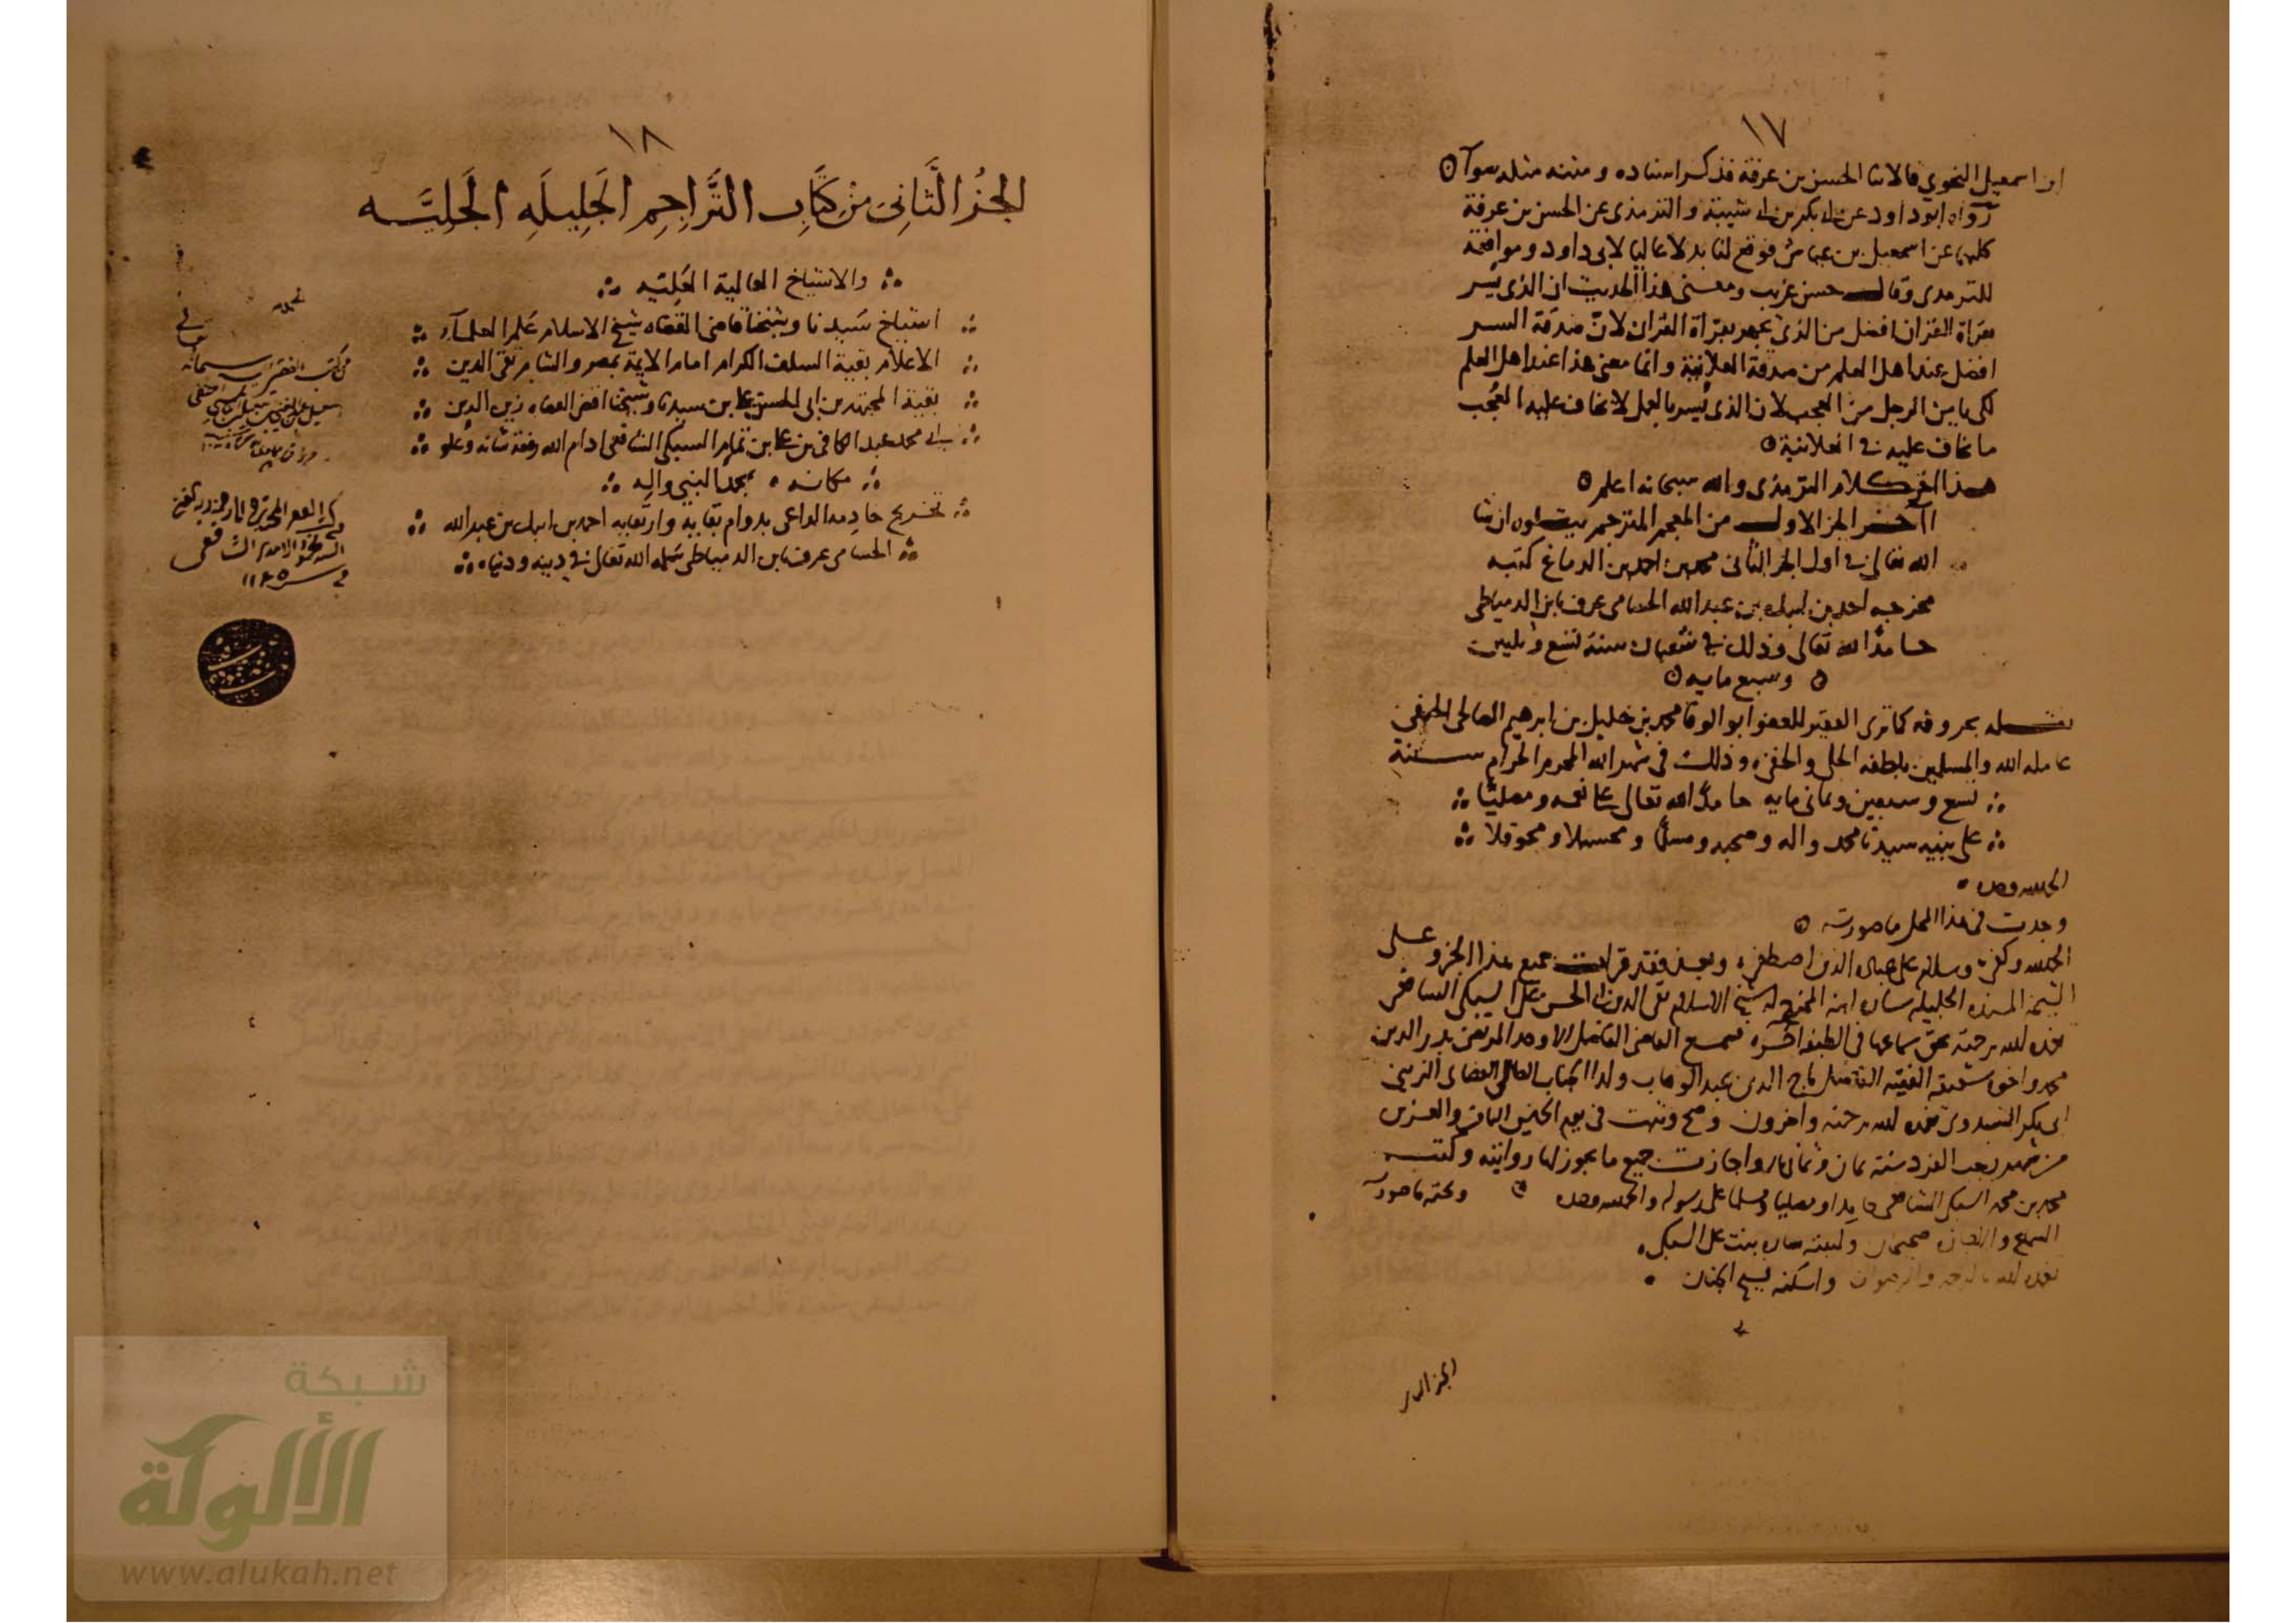 ١٧
ابن اسمعيل النحوي قالا ثنا الحسن بن عرفة فذكر اسناده ومتنه مثله سوآ
رواه ابو داود عن ابي بكر بن ابي شيبة والترمذى عن الحسن بن عرفة
كلاهما عن اسمعيل بن عياش فوقع لنا بدلا عاليا لابى داود وموافقة
للترمدى وقال حسن غريب ومعنى هذا الحديث ان الذى يسر
بقراة القران افضل من الذى يجهر بقرأة القران لان صدقة السر
افضل عند اهل العلم من صدقة العلانية وانما معنى هذا عند اهل العلم
لكى يامن الرجل من العجب لان الذى يسر بالعمل لا يخاف عليه العجب
ما يخاف عليه في العلانية
هذا اخر كلام الترمذى والله سبحانه اعلم
آخر الجز الاول من المعجم المترجم يتلوه ان شا
الله تعالى في اول الجز الثانى محمد بن احمد بن الدماغ كتبه
مخرجه احمد بن ايبك بن عبد الله الحسامى عرف بابن الدمياطى
حامدا لله تعالى وذلك في شعبان سنة تسع وثلثين
وسبع مايه
نقله بحروفه كما ترى الفقير للعفو ابو الوفا محمد بن خليل بن ابرهيم الصالحى الحنفى
عامله الله والمسلمين بلطفه الجلى والخفى وذلك فى شهر الله المحرم الحرام سنة
تسع وسبعين وثمانى مايه حامدا لله تعالى على نعمه ومصليا
على نبيه سيدنا محمد واله وصحبه ومسلما ومحسبلا ومحوقلا
الحمد لله وحده
وجدت فى هذا المحل ما صورته
الحمد لله وكفى وسلام على عباده الذين اصطفى وبعد فقد قرات جميع هذا الجزو على
الشيخة المسندة الجليله ساره ابنة المخرج له شيخ الاسلام تقى الدين ابى الحسن على السبكى الشافعى
تغمده الله برحمته بحق سماعها فى الطبقة اخره فسمع القاضى الفاضل الاوحد المرتضى بدر الدين
محمد واخوه شقيقه الفقيه الفاضل تاج الدين عبد الوهاب ولدا الجناب العالى القضاى الزينى
ابى بكر تغمده الله برحمته واخرون وصح وثبت فى يوم الخميس الثامن والعشرين
من شهر رجب الفرد سنة ثمان وثمان مايه واجازت جميع ما يجوز لها روايته وكتب
محمد بن محمد السبكى الشافعى حامدا ومصليا ومسلما على رسوله والحمد لله وحده وتحته ما صورته
السماع والاجازة صحيحان وكتبته ساره بنت على السبكى
تغمده الله بالرحمة والرضوان واسكنه فسيح الجنان
١٨
الجُزُ الثَّانِى مِنْ كِتَابِ التَّرَاجِمِ الجَلِيلَهِ الجَلِيَّه
والاشياخ العالية العَلِيَّه
اشياخ سيدنا وشيخنا قاضى القضاه شيخ الاسلام علم العلمآء
الاعلام بقية السلف الكرام امام الايمة بمصر والشام تقى الدين
بقية المجتهدين ابى الحسن على بن سيدنا وشيخنا اقضى القضاه زين الدين
ابى محمد عبد الكافى بن على بن تمام السبكى الشافعى ادام الله رفعة شانه وعلو
مكانه بمحمد النبى واله
تخريج خادمه الداعى بدوام بقايه وارتقايه احمد بن ايبك بن عبد الله
الحسامى عرف بابن الدمياطى سلمه الله تعالى في دينه ودنياه
من كتب الفقير
الشافعى
١١٢٥
شبكة
الألوكة
www.alukah.net